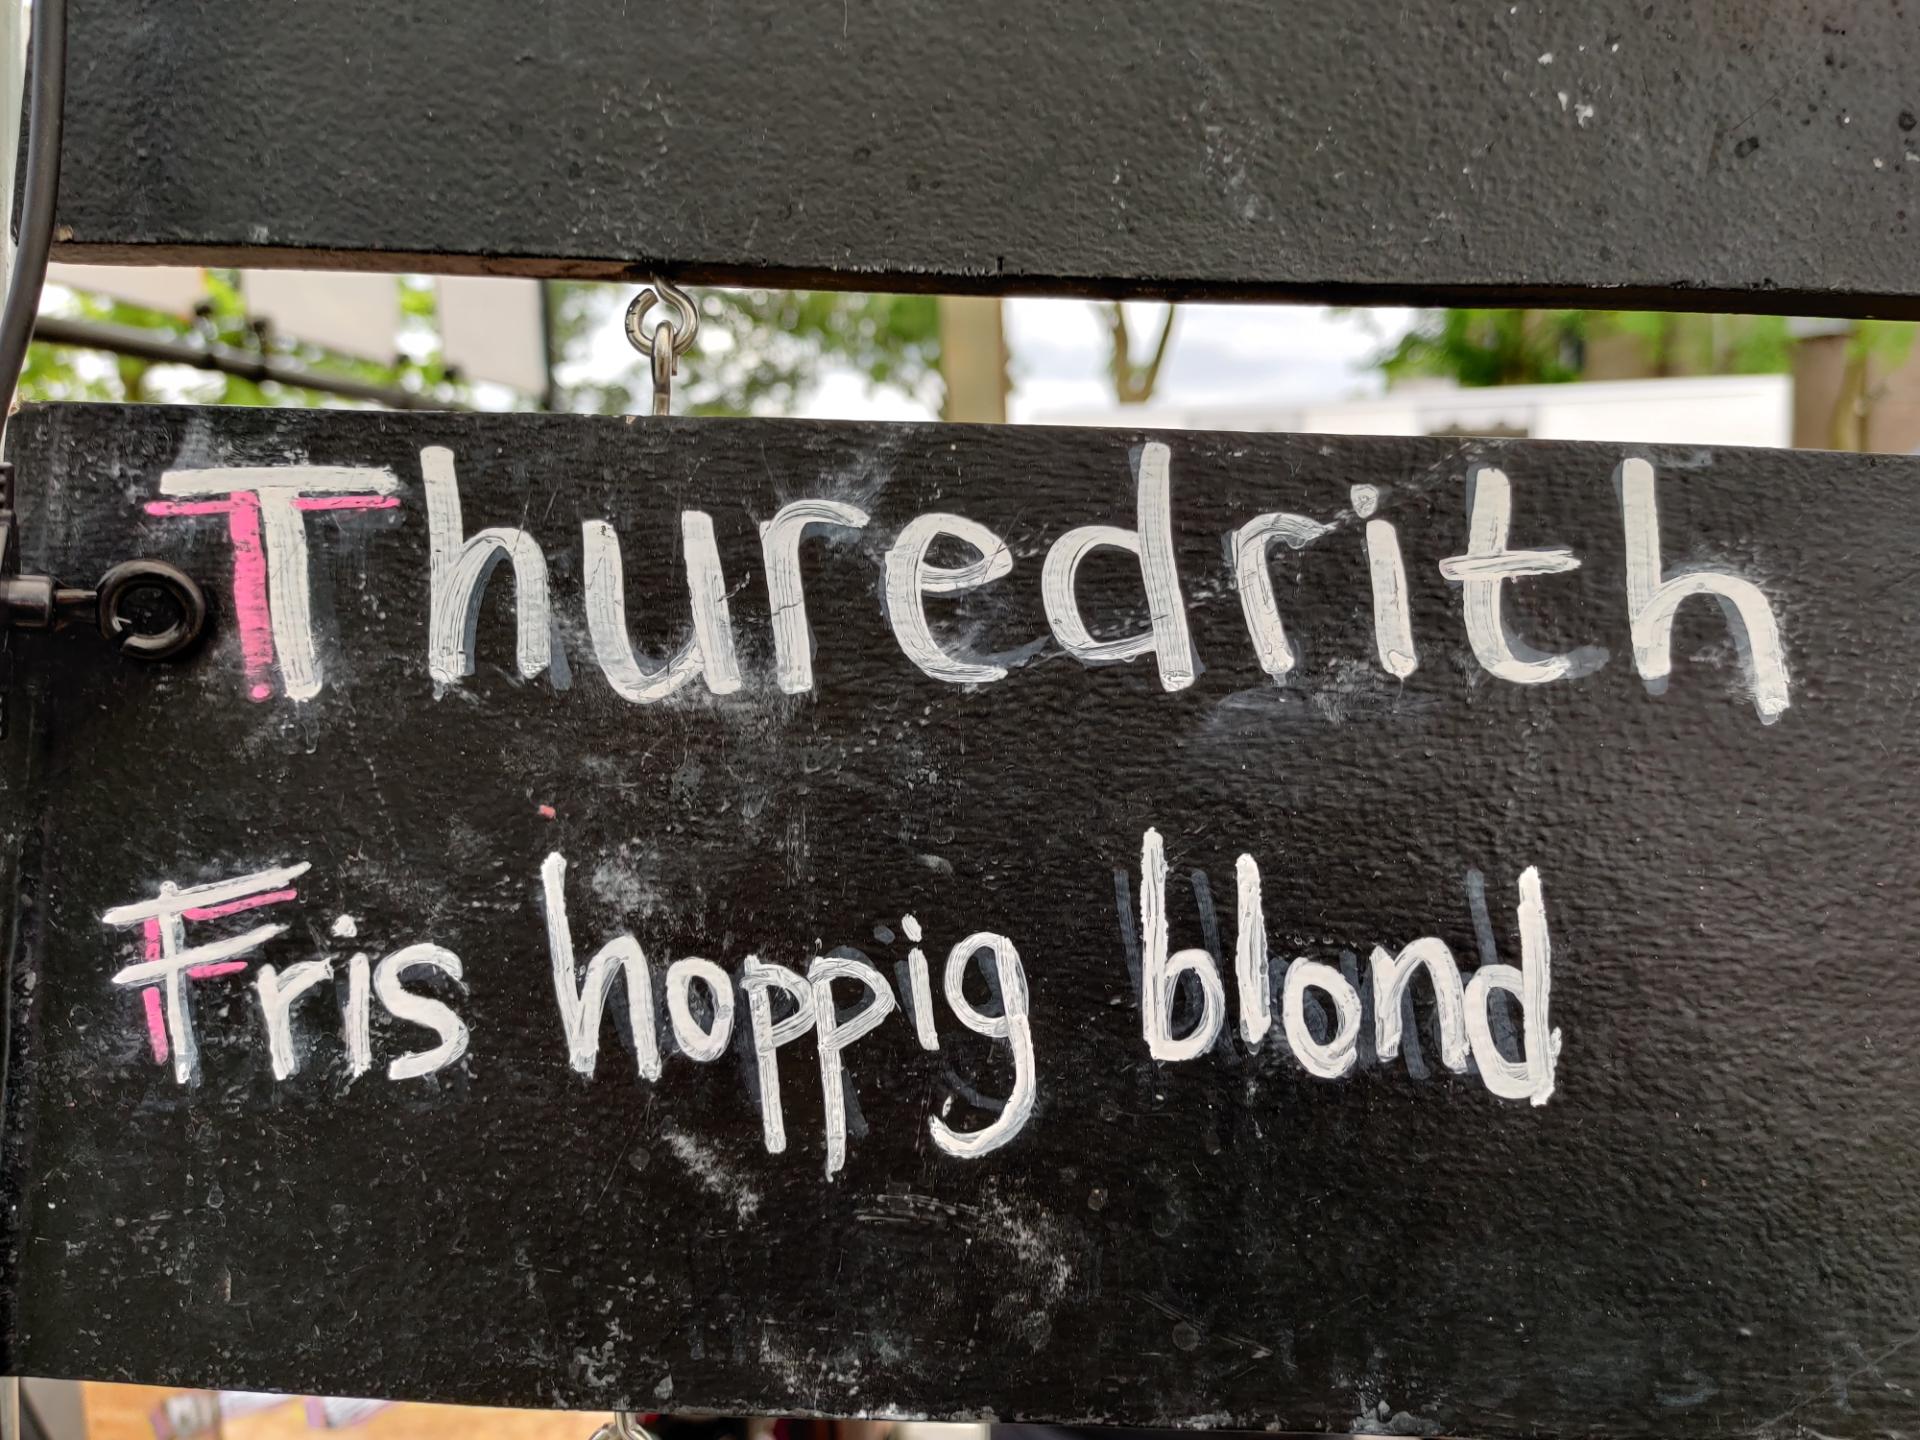 Thuredrith
Fris hoppig blond